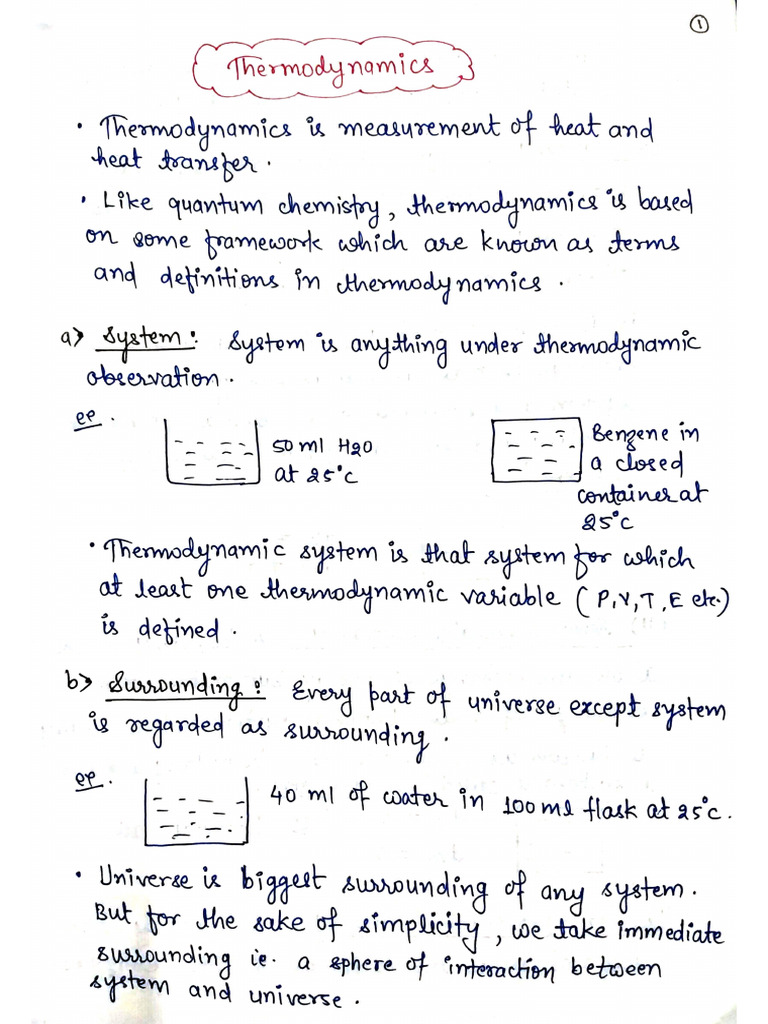 1
Thermodynamics
• Thermodynamics is measurement of heat and
heat transfer.
• Like quantum chemistry, thermodynamics is based
on some framework which are known as terms
and definitions in thermodynamics.
a) System: System is anything under thermodynamic
observation.
eg.
50 ml H2O
at 25°C
Benzene in
a closed
container at
25°C
• Thermodynamic system is that system for which
at least one thermodynamic variable (P,V,T,E etc.)
is defined.
b) Surrounding: Every part of universe except system
is regarded as surrounding.
eg.
40 ml of water in 100 ml flask at 25°C.
• Universe is biggest surrounding of any system.
But for the sake of simplicity, we take immediate
surrounding ie. a sphere of interaction between
system and universe.